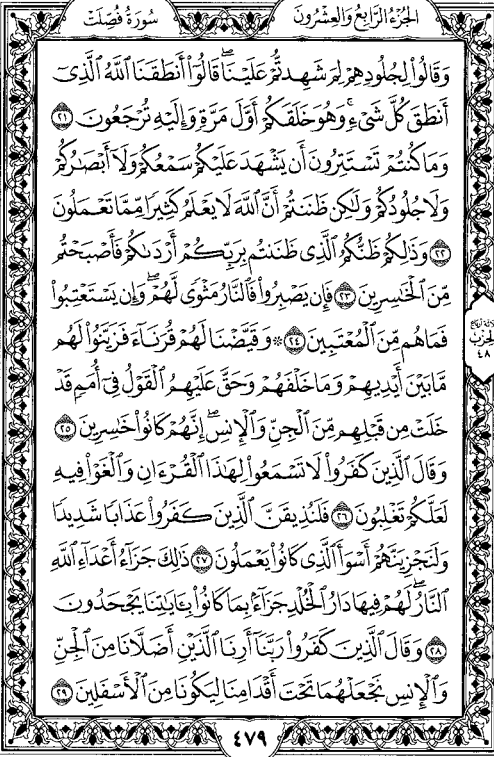 الجزء الرابع والعشرون
سورة فصلت
وَقَالُوا۟ لِجُلُودِهِمْ لِمَ شَهِدتُّمْ عَلَيْنَا ۖ قَالُوٓا۟ أَنطَقَنَا ٱللَّهُ ٱلَّذِىٓ
أَنطَقَ كُلَّ شَىْءٍ ۚ وَهُوَ خَلَقَكُمْ أَوَّلَ مَرَّةٍ وَإِلَيْهِ تُرْجَعُونَ ٢١
وَمَا كُنتُمْ تَسْتَتِرُونَ أَن يَشْهَدَ عَلَيْكُمْ سَمْعُكُمْ وَلَآ أَبْصَـٰرُكُمْ
وَلَا جُلُودُكُمْ وَلَـٰكِن ظَنَنتُمْ أَنَّ ٱللَّهَ لَا يَعْلَمُ كَثِيرًا مِّمَّا تَعْمَلُونَ
٢٢ وَذَٰلِكُمْ ظَنُّكُمُ ٱلَّذِى ظَنَنتُم بِرَبِّكُمْ أَرْدَىٰكُمْ فَأَصْبَحْتُم
مِّنَ ٱلْخَـٰسِرِينَ ٢٣ فَإِن يَصْبِرُوا۟ فَٱلنَّارُ مَثْوًى لَّهُمْ ۖ وَإِن يَسْتَعْتِبُوا۟
فَمَا هُم مِّنَ ٱلْمُعْتَبِينَ ٢٤ ۞ وَقَيَّضْنَا لَهُمْ قُرَنَآءَ فَزَيَّنُوا۟ لَهُم
مَّا بَيْنَ أَيْدِيهِمْ وَمَا خَلْفَهُمْ وَحَقَّ عَلَيْهِمُ ٱلْقَوْلُ فِىٓ أُمَمٍ قَدْ
خَلَتْ مِن قَبْلِهِم مِّنَ ٱلْجِنِّ وَٱلْإِنسِ ۖ إِنَّهُمْ كَانُوا۟ خَـٰسِرِينَ ٢٥
وَقَالَ ٱلَّذِينَ كَفَرُوا۟ لَا تَسْمَعُوا۟ لِهَـٰذَا ٱلْقُرْءَانِ وَٱلْغَوْا۟ فِيهِ
لَعَلَّكُمْ تَغْلِبُونَ ٢٦ فَلَنُذِيقَنَّ ٱلَّذِينَ كَفَرُوا۟ عَذَابًا شَدِيدًا
وَلَنَجْزِيَنَّهُمْ أَسْوَأَ ٱلَّذِى كَانُوا۟ يَعْمَلُونَ ٢٧ ذَٰلِكَ جَزَآءُ أَعْدَآءِ ٱللَّهِ
ٱلنَّارُ ۖ لَهُمْ فِيهَا دَارُ ٱلْخُلْدِ ۖ جَزَآءًۢ بِمَا كَانُوا۟ بِـَٔايَـٰتِنَا يَجْحَدُونَ
٢٨ وَقَالَ ٱلَّذِينَ كَفَرُوا۟ رَبَّنَآ أَرِنَا ٱلَّذَيْنِ أَضَلَّانَا مِنَ ٱلْجِنِّ
وَٱلْإِنسِ نَجْعَلْهُمَا تَحْتَ أَقْدَامِنَا لِيَكُونَا مِنَ ٱلْأَسْفَلِينَ ٢٩
الحزب
٤٨
٤٧٩